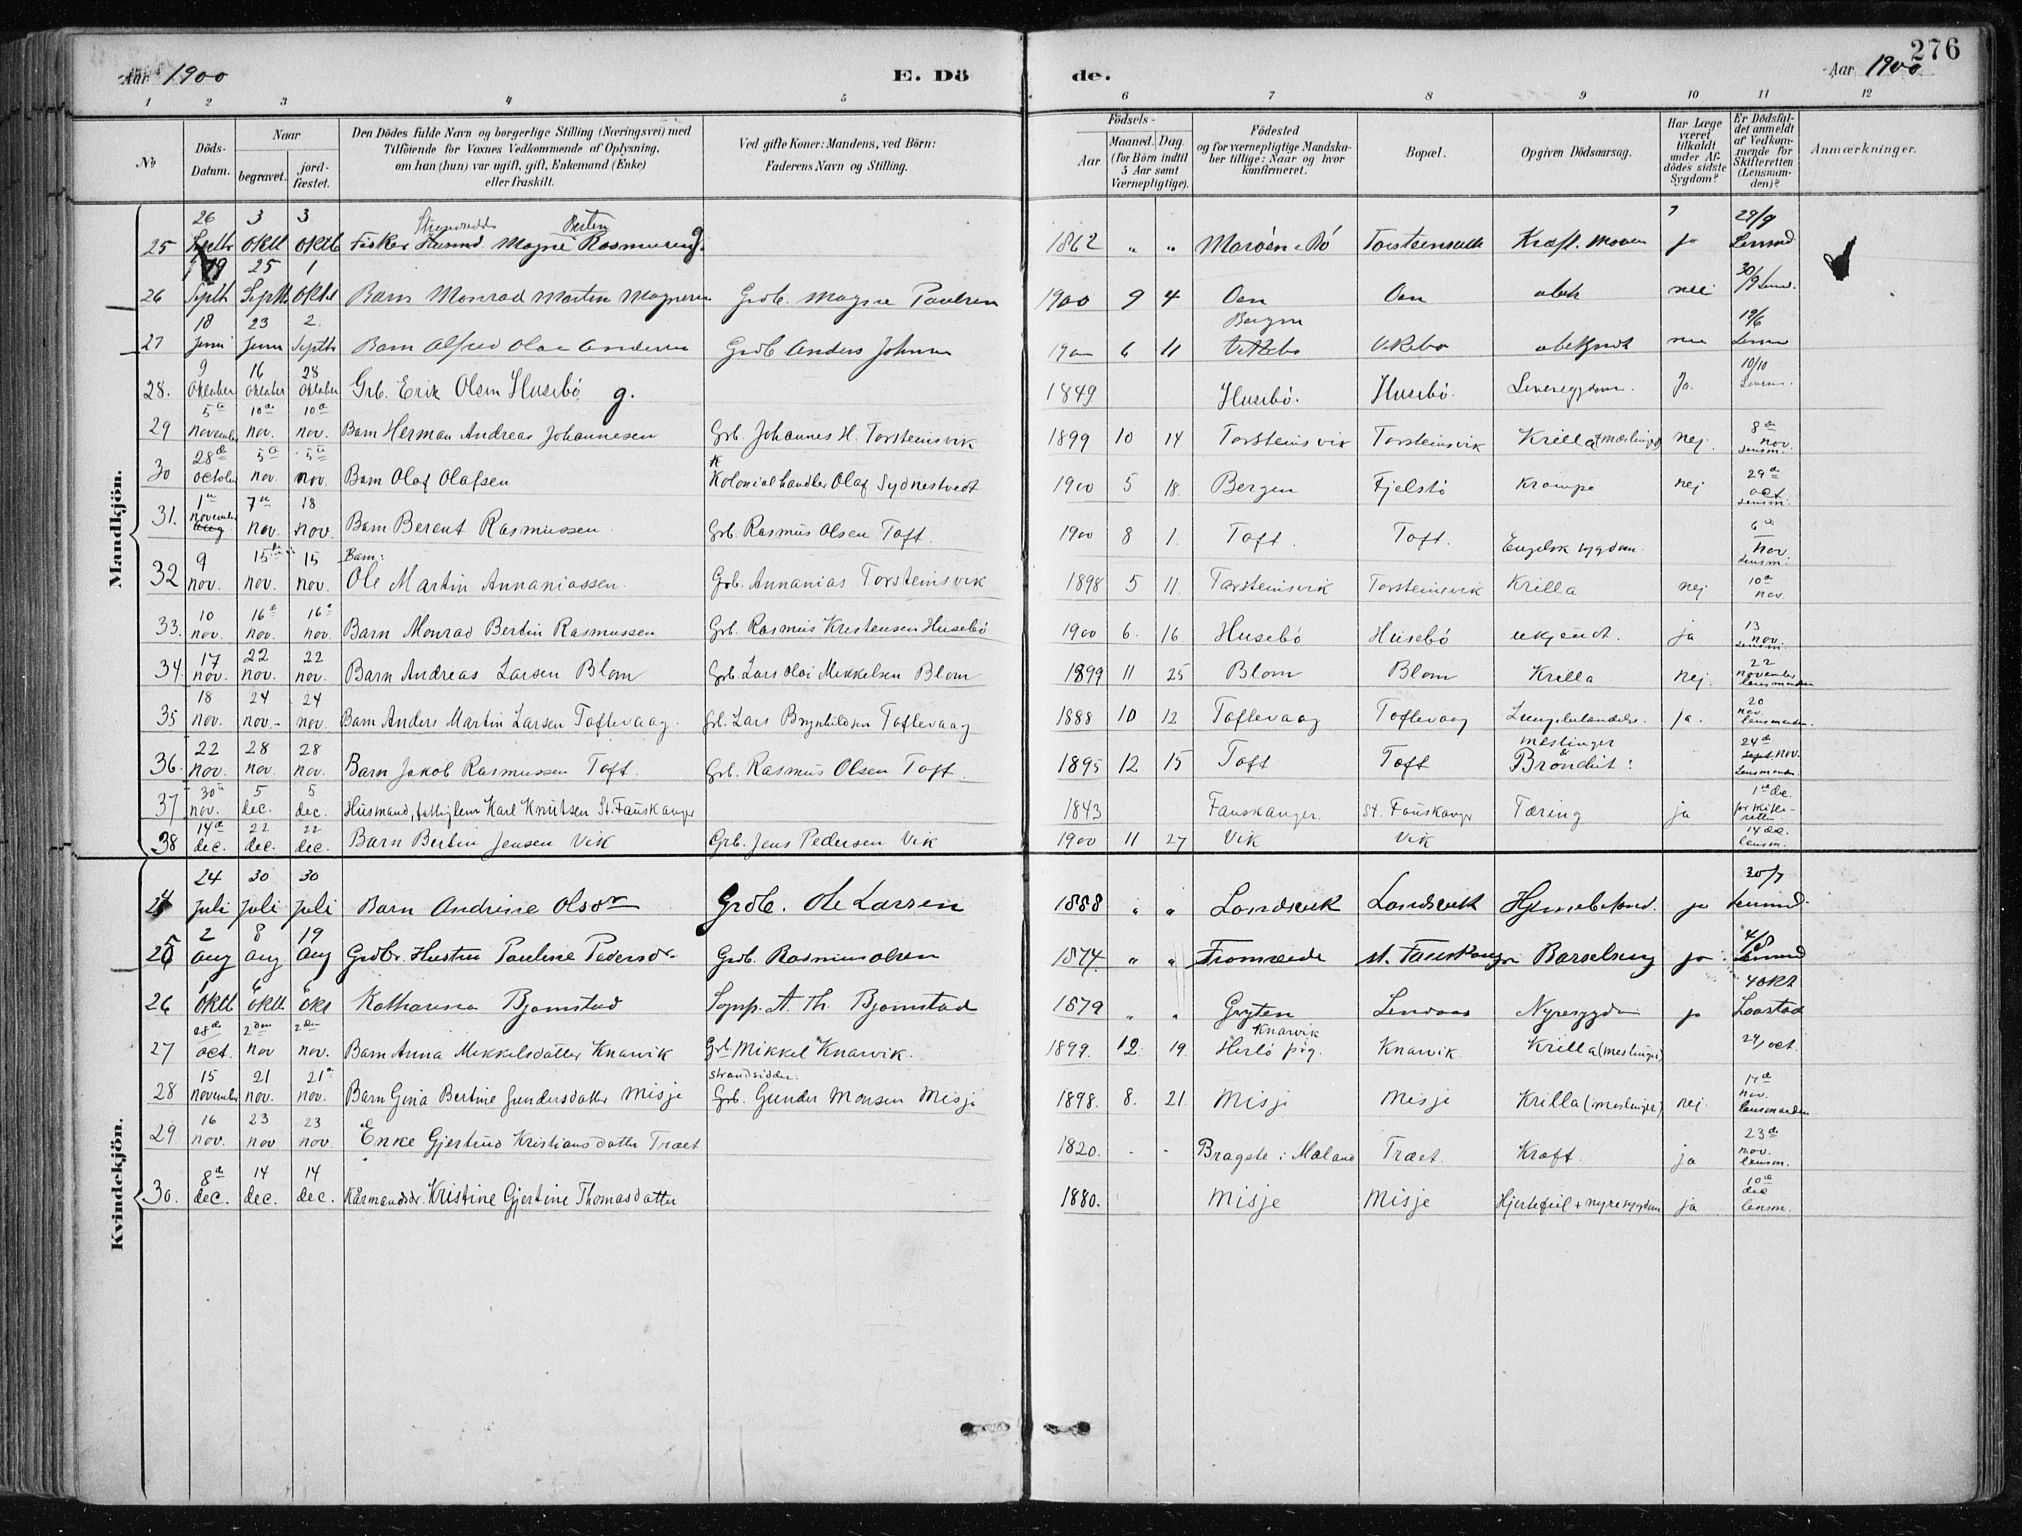 276
Aar 1900 E. Döde. Aar 1900
1 2 3 4 5 6 7 8 9 10 11 12
No
Döds-Datum.
Naar
begravet.
jord-fæstet.
Den Dödes fulde Navn og borgerlige Stilling (Næringsvei) med
Tilföiende for Voxnes Vedkommende af Oplysning,
om han (hun) var ugift, gift, Enkemand (Enke)
eller fraskilt.
Ved gifte Koner: Mandens, ved Börn:
Faderens Navn og Stilling.
Födsels-
Aar
Maaned. Dag.
(for Börn indtil
5 Aar samt
Værnepligtige).
Födested
og for værnepligtige Mandska-
ber tillige: Naar og hvor
konfirmeret.
Bopæl.
Opgiven Dödsaarsag.
Har Læge
været
tilkaldt
under Af-
dödes sidste
Sygdom?
Er Dödsfal-
det anmeldt
af Vedkom-
mende for
Skifteretten
(Lensman-
den)?
Anmærkninger.
Mandkjön.
25 26 Septb 3 oktb 3 oktb Fisker Husmd Magne Rasmussen g. 1862 " " Torsteinsvik Kræft. Maven ja 29/9 Lensmd
26 Septb 25 Septb 1 oktb Barn Monrad Martin Magnesen Grdb. Magne Paulsen 1900 9 4 Oen Oen ubek nei 30/9 Lensmd.
27 18 Juni 23 Juni 2. Septbr Barn Alfred Olai Andersen Grdb Anders Johnsen 1900 6 11 Bergen Vikebø Vikebø ubekjendt nei 19/6
28. 9 Oktober 16 Oktober 28 Oktober Grb. Erik Olsen Husebö g. 1849 Husebö. Husebö. Leversygdom. Ja. 10/10 Lensm.
29 5te november 10de nov. 10de nov. Barn Herman Andreas Johannesen Grb. Johannes H. Torsteinsvik 1899 10 14 Torsteinsvik Torsteinsvik Krilla (mæslinger) nej. 8de nov. lensm.
30 28de october 5te nov. 5te nov. Barn Olaf Olafsen Kolonialhandler Olaf Sydnestvedt 1900 5 18. Bergen Fjelstö Krampe nej 29de oct. lensm.
31. 1ste november 7de nov. 18 nov. Barn Berent Rasmussen. Grb. Rasmus Olsen Toft. 1900 8 1. Toft. Toft. Engelsk sygdom. 6te nov. lensm.
32 9 nov. 15de nov. 15 nov. Barn: Ole Martin Annaniassen. Grb. Annanias Torsteinsvik 1898 5 11. Torsteinsvik Torsteinsvik Krilla nej 10de nov.
33. 10 nov. 16de nov. 16de nov. Barn Monrad Bertin Rasmussen Grb. Rasmus Kristensen Husebö 1900 6. 16 Husebö Husebö ukjendt. ja 13 nov. lensm.
34. 17 nov. 22 nov. 22 nov. Barn Andreas Larsen Blom Grb. Lars Olai Mikkelsen Blom 1899 11 25 Blom Blom Krilla nej. 22 november lensmanden
35 18 nov. 24 nov. 24 nov. Barn Anders Martin Larsen Toftevaag. Grb. Lars Brynhildsen Toftevaag 1888 10 12 Toftevaag Toftevaag Lungebetændelse. ja. 20 nov. lensmanden.
36. 22 nov. 28 nov. 28 nov. Barn Jakob Rasmussen Toft. Grb. Rasmus Olsen Toft. 1895 12 15 Toft Toft mæslinger & Bronchit: 24de sept. nov. Lensmanden
37 30te nov. 5 dec. 5 dec. Husmand, fattiglem Karl Knutsen St. Fauskanger 1843 Fauskanger. St. Fauskanger Tæring ja 1ste dec. for skifteretten
38 14de dec. 22 dec. 22 dec. Barn Bertin Jensen Vik Grb. Jens Pedersen Vik 1900 11 27 Vik Vik 14 dec. lensm.
Kvindekjön.
24 24 juli 30 juli 30 juli Barn Andrine Olsdr Grdb. Ole Larsen 1888 " " Landsvik Landsvik Hjernebetænd. ja 30/7 Lensmd.
25 2 aug 8 aug 19 aug Grdbr. Hustru Pauline Pedersdr Grdb. Rasmus Olsen 1874 " " Fromreide st. Fauskanger Barselseng ja 4/8 Lensmd
26 1 oktb 6 oktb 6 okt Katharina Bjørnstad Sogp. A. Th. Bjørnstad 1879 " " Gryten Nyresygdom ja 4 okt
27 28de oct. 2den nov 2den nov. Barn Anna Mikkelsdatter Knarvik Grb. Mikkel Knarvik. 1899. 12 19. Knarvik Herlö prg. Knarvik Krilla (meslinger) 29, oct.
28 15 november 21 nov. 21de nov. Barn Gina Bertine Gundersdatter Misje strandsidder. Grb. Gunder Monsen Misje 1898. 8. 21. Misje Misje Krilla (meslinger) nej. 17de nov. lensmanden
29 16 nov. 23 nov 23 nov. Enke Gjertrud Kristiansdatter Træet 1820. - - Bragste i Mæland Træet. Kræft. ja 23de nov. lensm.
30. 8de dec. 14 dec. 14 dec. Kårmandsdr. Kristine Gjertine Thomasdatter 1880. Misje Misje Hjertefeil + nyresygdom ja 10de dec lensm.